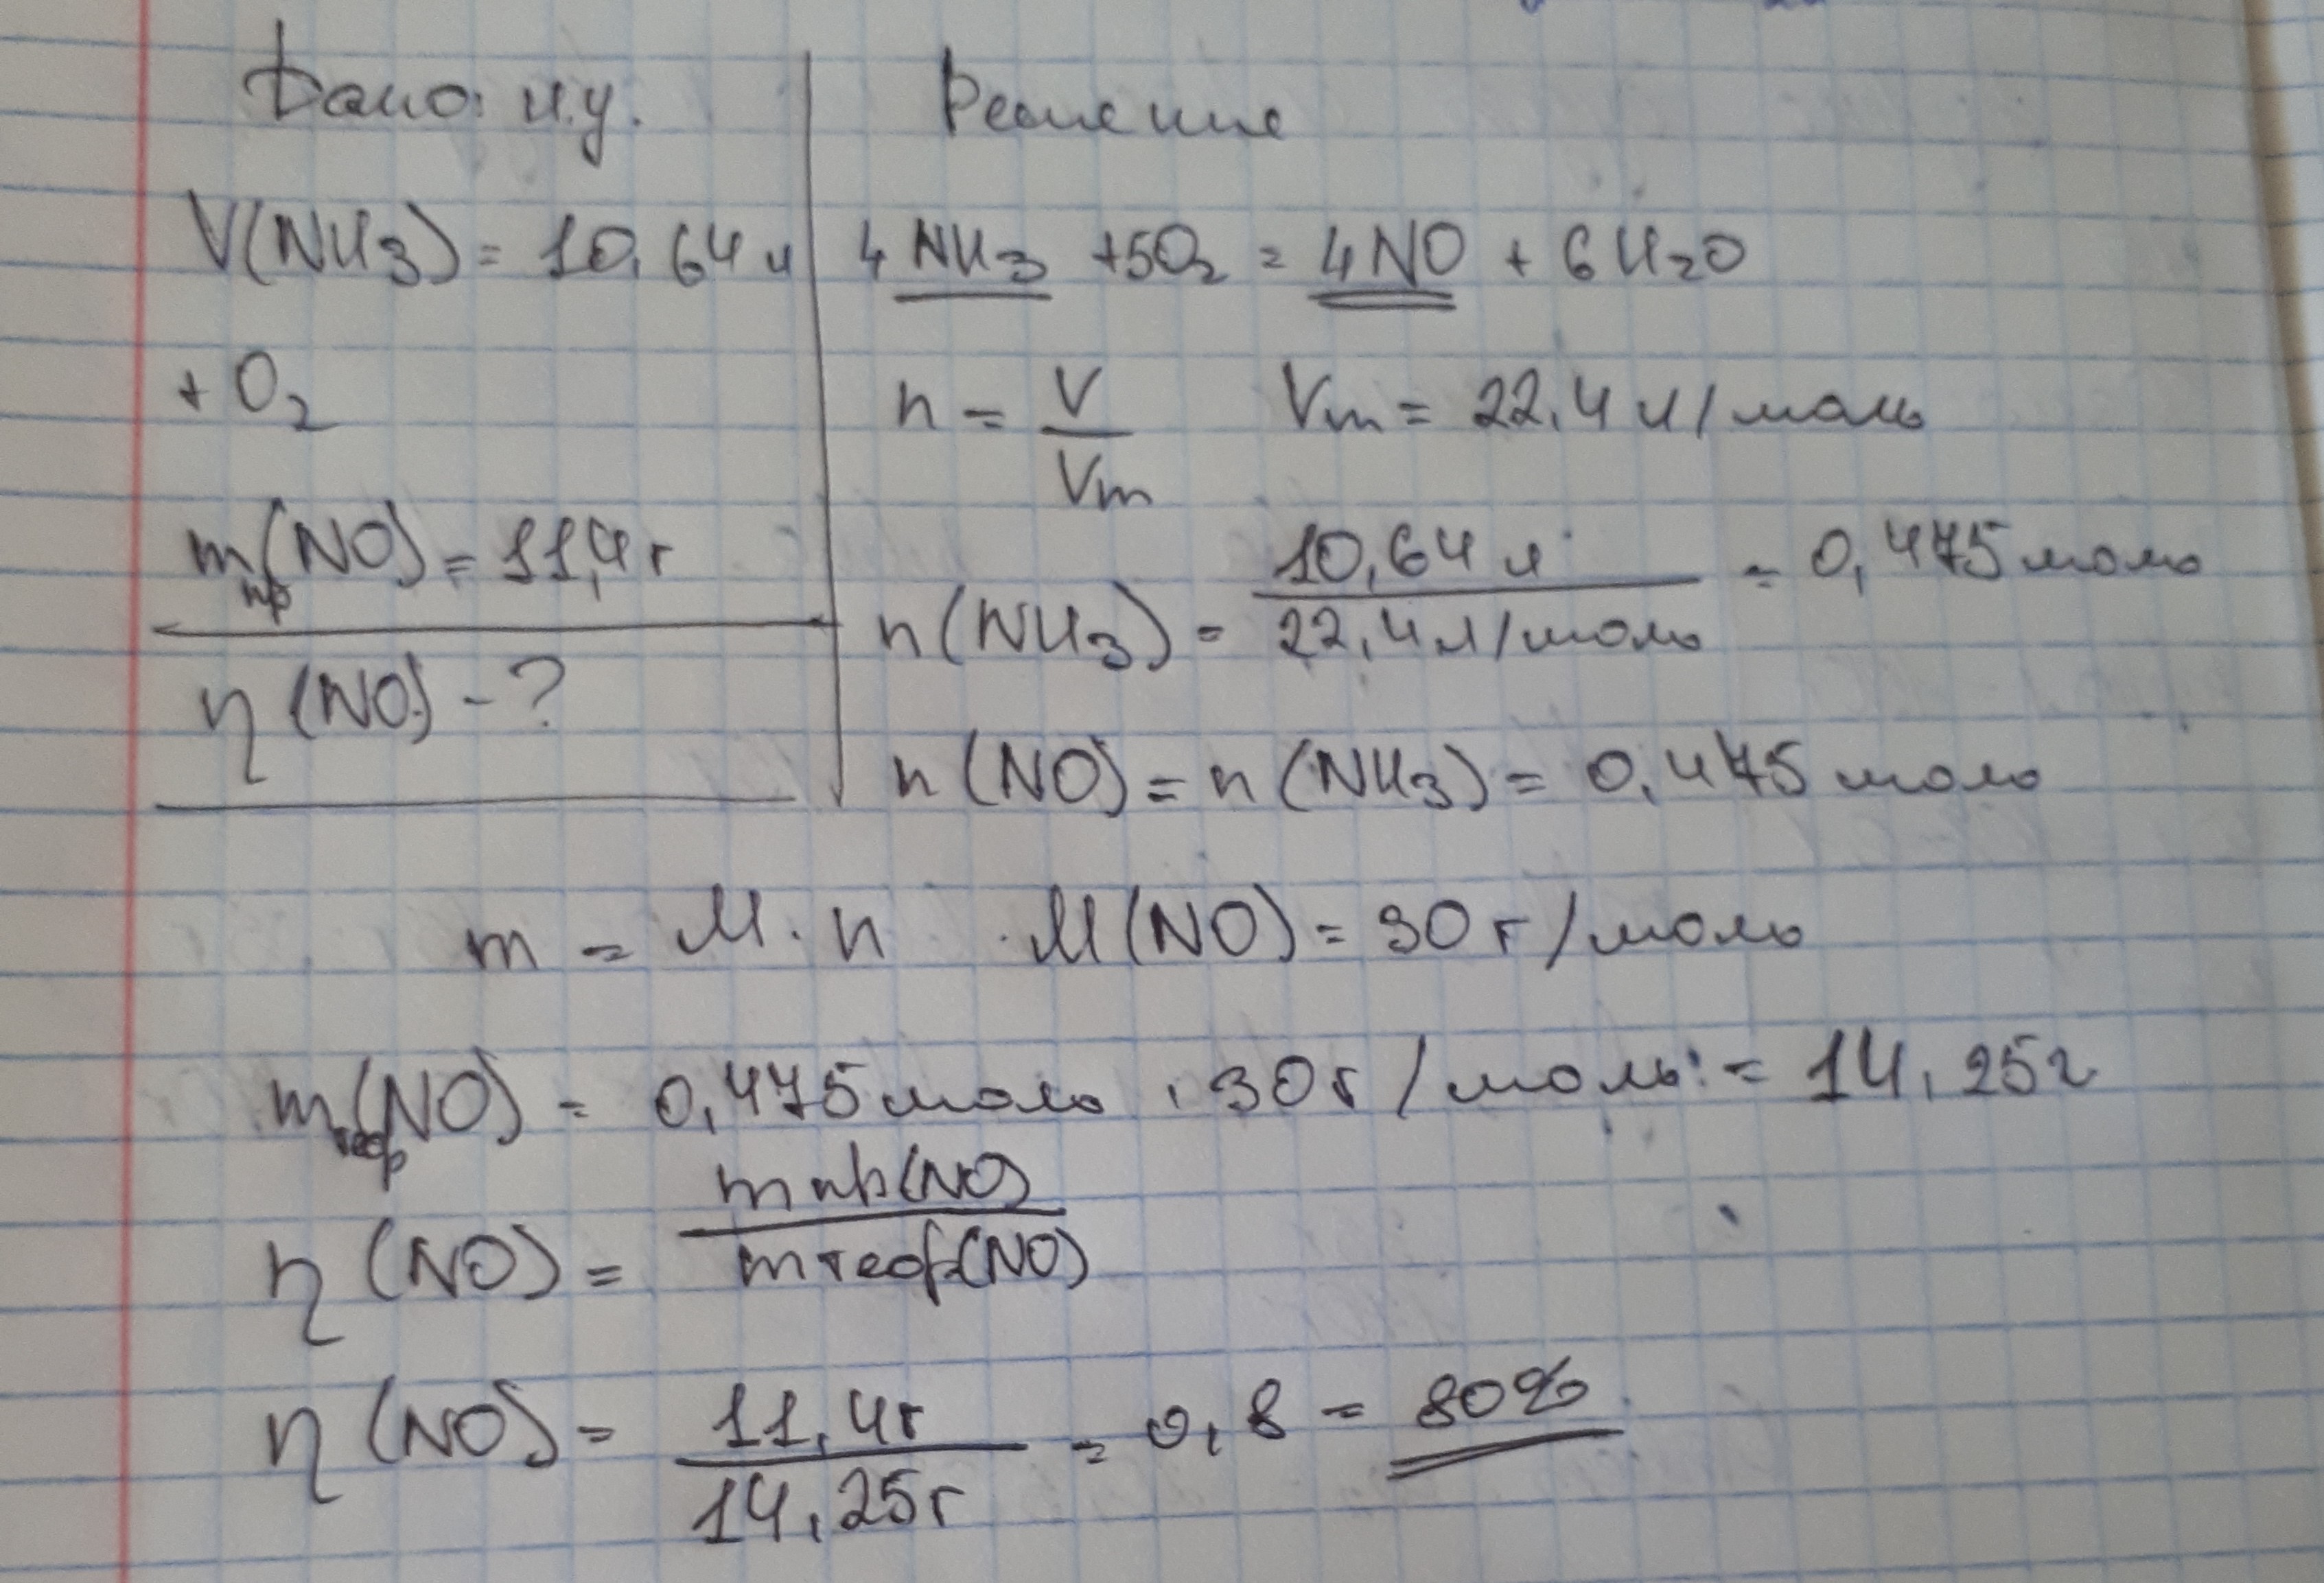 Дано: н.у.
V(NH3) = 10,64 л
+ O2
mпр(NO) = 11,4 г
η (NO) - ?
Решение
4 NH3 + 5O2 = 4NO + 6H2O
n = V/Vm Vm = 22,4 л/моль
n(NH3) = 10,64 л / 22,4 л/моль = 0,475 моль
n (NO) = n (NH3) = 0,475 моль
m = M · n M(NO) = 30 г/моль
mтеор(NO) = 0,475 моль · 30 г/моль = 14,25 г
η (NO) = mпр(NO) / mтеор(NO)
η (NO) = 11,4 г / 14,25 г = 0,8 = 80%